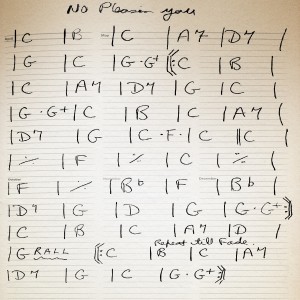 No Pleasin you
| C | B | C | A7 | D7 |
| G | C | G · G+ ‖: C | B |
| C | A7 | D7 | G | C |
| G · G+ | C | B | C | A7 |
| D7 | G | C · F · | C ‖ C
| ٪ | F | ٪ | C | ٪ |
| F | ٪ | Bb | F | Bb |
| D7 | G | D | G | G · G+ :‖
| C | B | C | A7 | D |
Repeat till Fade.
| G RALL ‖: C | B | C | A7
| D7 | G | C | G · G+ :‖